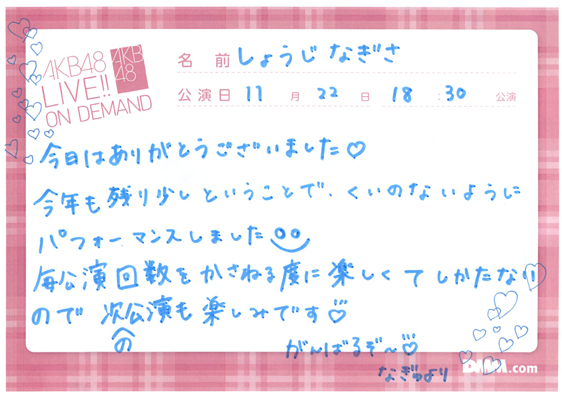 AKB48
LIVE!!
ON DEMAND
AKB
48
名 前 しょうじ なぎさ
公演日 11 月 22 日 18 : 30 公演
今日はありがとうございました♡
今年も残り少しということで、くいのないように
パフォーマンスしました
毎公演回数をかさねる度に楽しくてしかたない
ので 次の公演も楽しみです♡
がんばるぞ〜♡
なぎゅより
DMM.com